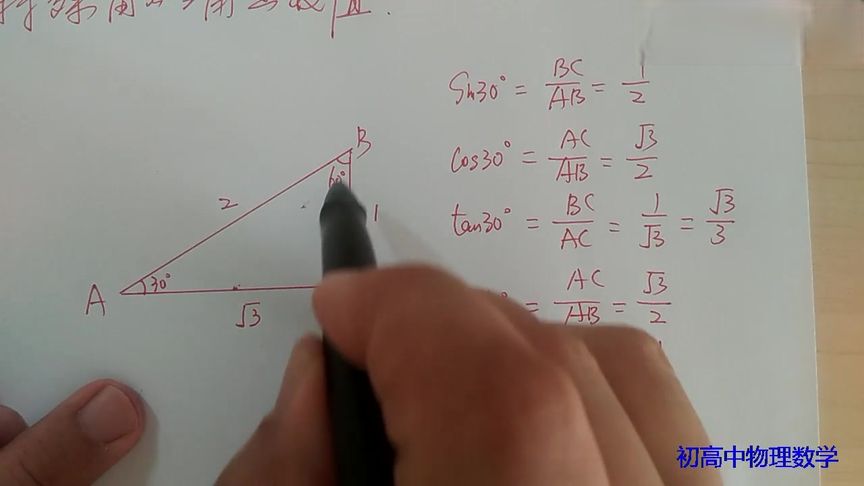 sin30° = BC/AB = 1/2
cos30° = AC/AB = √3/2
tan30° = BC/AC = 1/√3 = √3/3
° = AC/AB = √3/2
B
60°
2
1
A
30°
√3
初高中物理数学